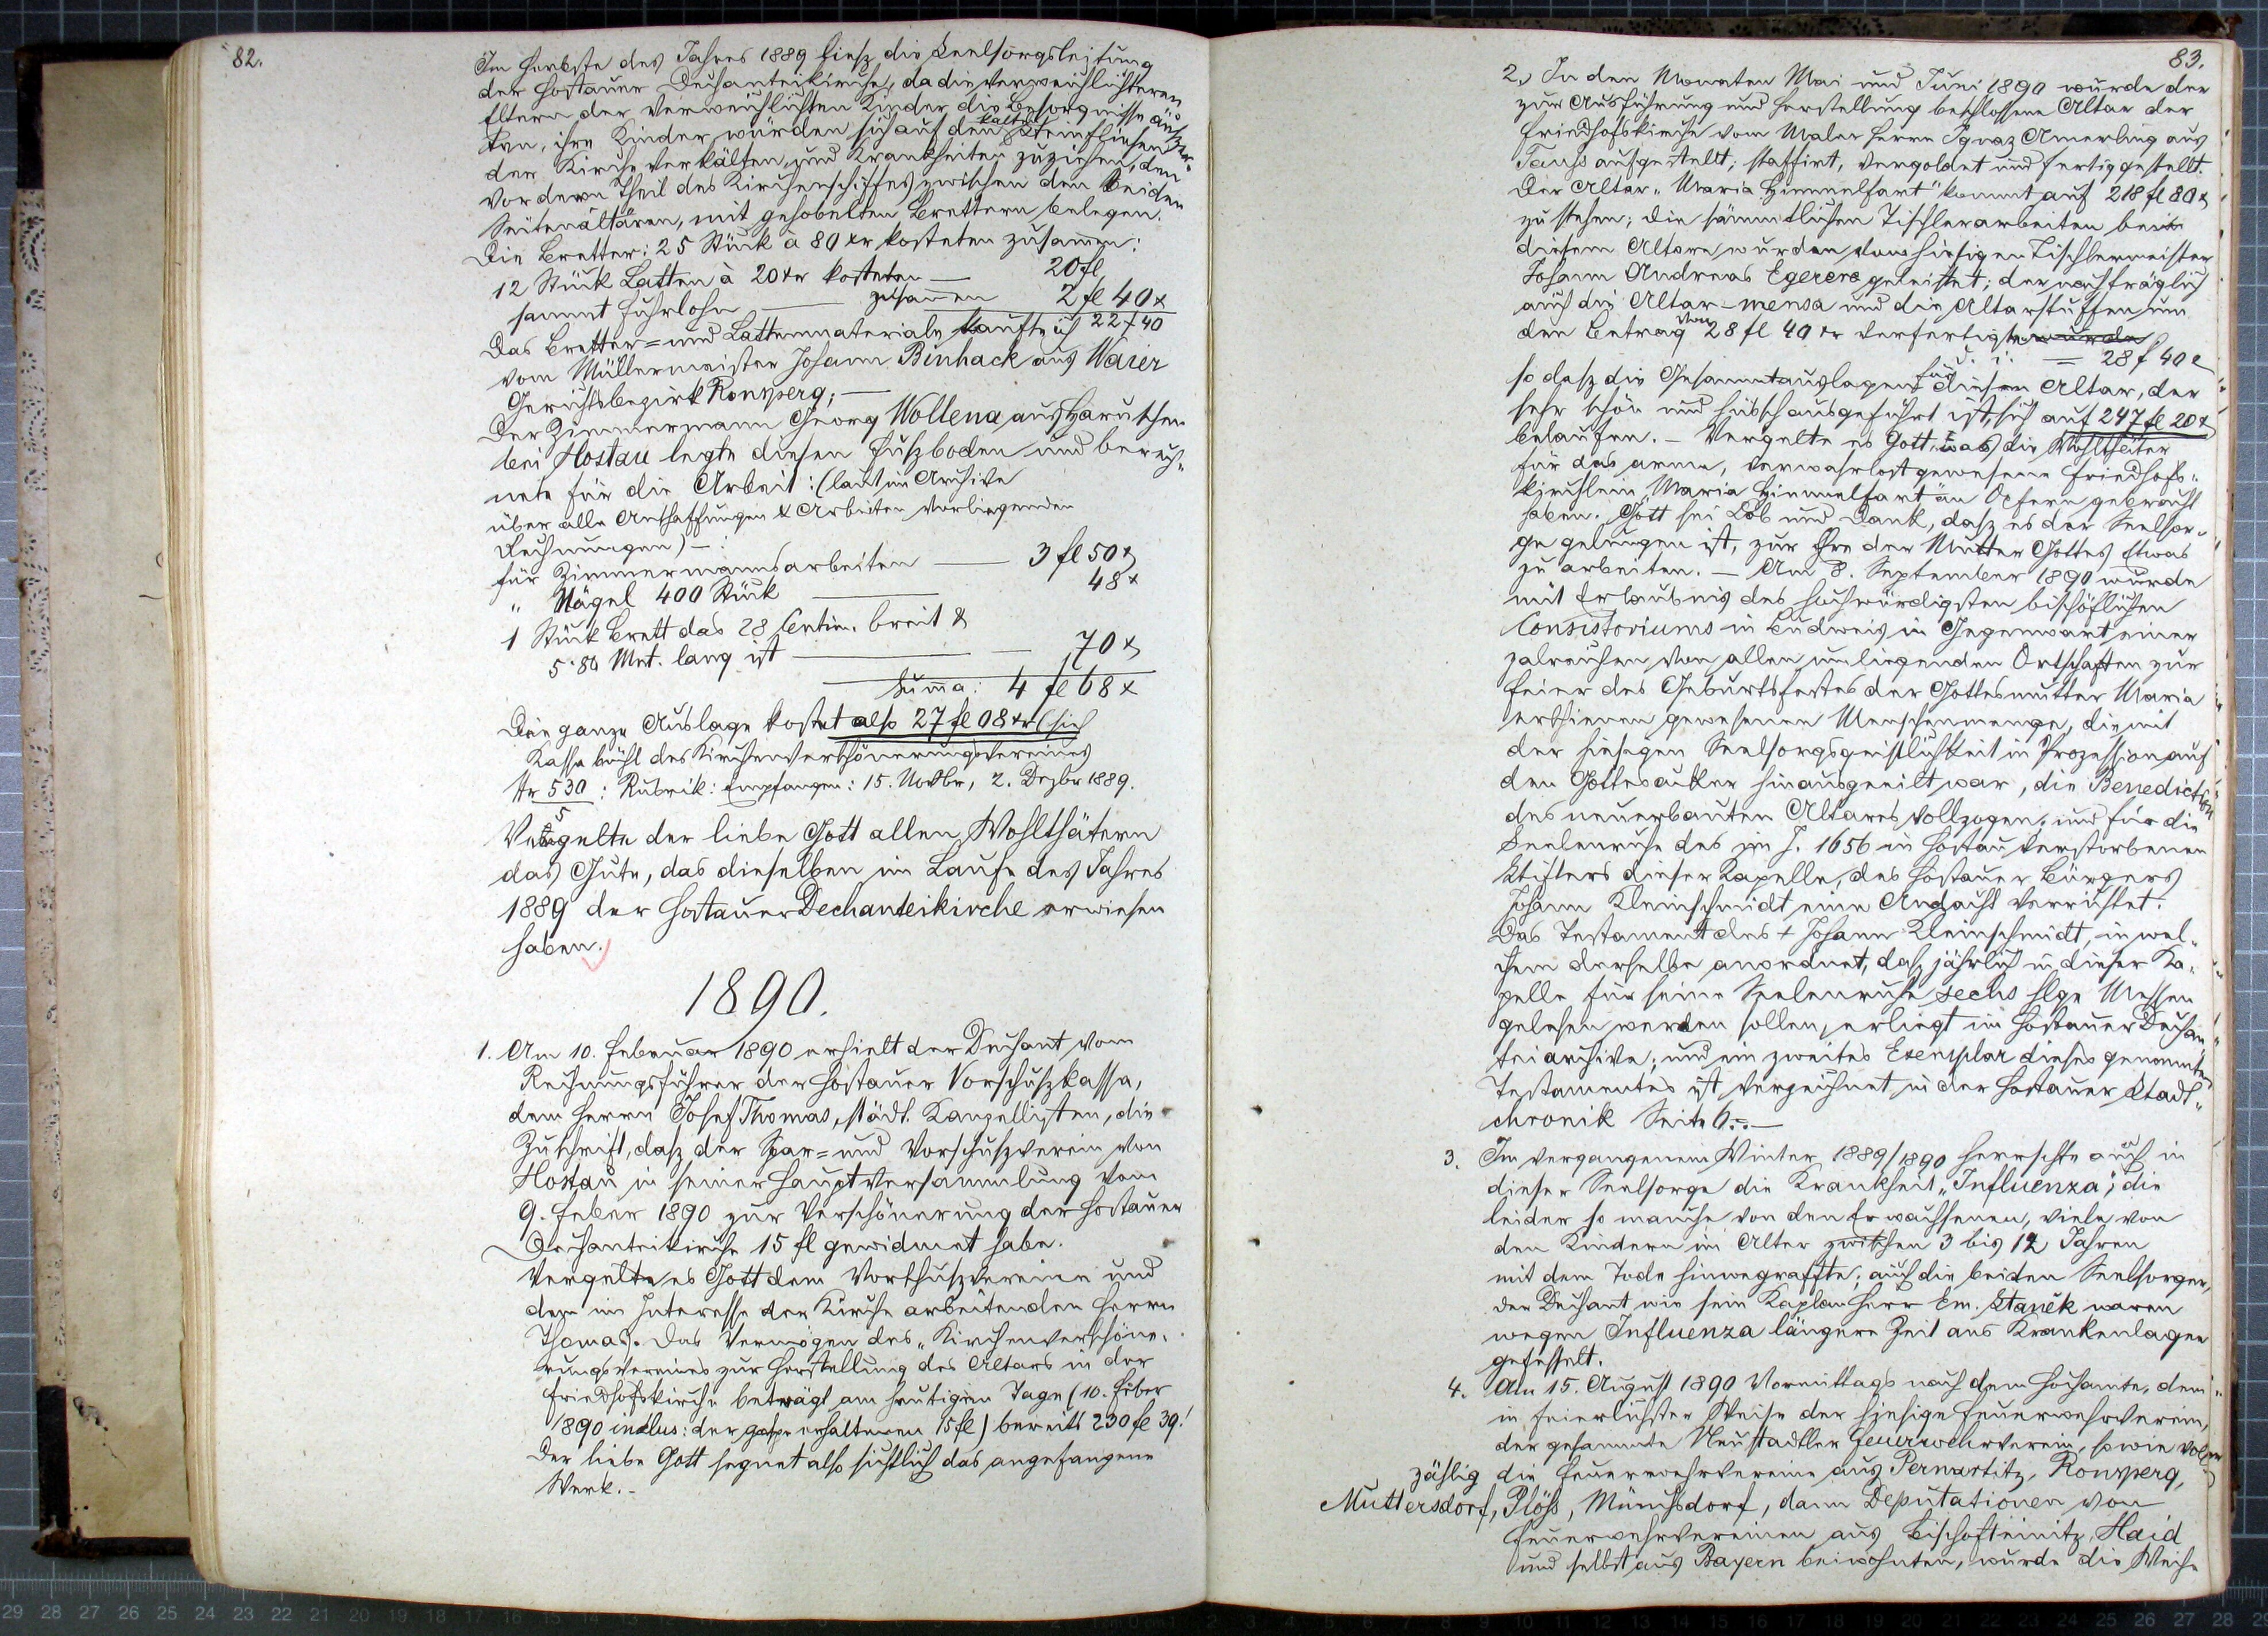 82.
Im Herbste des Jahres 1889 liesz die Seelsorgsleitung
der Hostauer Dechanteikirche, da die verweichlichteren
Eltern der verweichlichten Kinder die Besorgnisse äusz„
ten, ihre Kinder würden sich auf den kalten Steinfliesen
der Kirche verkälten und Krankheiten zuziehen, den
vordern Theil des Kirchenschiffes zwischen den beiden
Seitenältären, mit gehobelten Brettern belegen.
Die Bretter: 25 Stück à 80 xr kosteten zusam̄en:
20 fl
12 Stück Latten à 20 xr kosteten —
sammt Fuhrlohn — zusam̄en 2 fl 40 x
22 f 40
Das Bretter= und Lattenmateriale kaufte ich
vom Müllermeister Johann Binhack aus Waier
Gerichtsbezirk Ronsperg; —
Der Zimmermann Georg Wollena aus Haruschen
bei Hostau legte diesen Fuszboden und berech„
nete für die Arbeit: (laut im Archive
über alle Anschaffungen & Arbeiten vorliegenden
Rechnungen) — :
für Zimmermannsarbeiten — 3 fl 50 x
„ Nägel 400 Stück — 48 x
1 Stück Brett das 28 Centim. breit &
5·80 Met. lang ist — 70 x
Sum̄a: 4 fl 68 x
Die ganze Auslage kostet also 27 fl 08 xr (sieh
Kassabüchl des Kirchenverschönerungsvereines
Nr 530/5 : Rubrik: Empfangen: 15. Novbr, 2. Dezbr 1889.
Vergelte der liebe Gott allen Wohlthätern
das Gute, das dieselben im Laufe des Jahres
1889 der Hostauer Dechanteikirche erwiesen
haben.
1890.
1. Am 10. Februar 1890 erhielt der Dechant vom
Rechnungsführer der Hostauer Vorschuszkassa,
dem Herrn Josef Thomas, städt. Kanzellisten, die
Zuschrift, dasz der Spar= und Vorschuszverein von
Hostau in seiner Hauptversammlung vom
9. Feber 1890 zur Verschönerung der Hostauer
Dechanteikirche 15 fl gewidmet habe.
Vergelte es Gott dem Vorschuszvereine und
dem im Interesse der Kirche arbeitenden Herrn
Thomas. Das Vermögen des „Kirchenverschöne„
rungsvereines zur Herstellung des Altars in der
Friedhofskirche beträgt am heutigen Tage (10. Feber
1890 inclus: der erhaltenen 15 fl) bereits 230 fl 39!
Der liebe Gott segnet also sichtlich das angefangene
Werk. -
83.
2. In den Monaten Mai und Juni 1890 wurde der
zur Ausführung und Herstellung beschlossene Altar der
Friedhofskirche vom Maler Herrn Ignaz Amerling aus
Tauss aufgestellt; staffirt, vergoldet und fertiggestellt.
Der Altar „Maria Himmelfart" kommt auf 218 fl 80 x
zu stehen; die sämmtlichen Tischlerarbeiten bei
diesem Altare wurden vom hiesigen Tischlermeister
Johann Andreas Egerer geleistet; der nachträglich
auch die Altar-mensa und die Altarstuffen um
den Betrag von 28 fl 40 xr verfertigte wurde
d. i. = 28 f 40 x
so dasz die Gesammtauslagen für diesen Altar, der
sehr schön und hübsch ausgeführt ist, sich auf 247 fl 20 x
belaufen. - Vergelte es Gott, was die Wohlthäter
für das arme, verwahrlost gewesene Friedhofs„
kirchlein Maria Himmelfart an Opfern gebracht
haben. Gott sei Lob und Dank, dasz es der Seelsor„
ge gelungen ist, zur Ehre der Mutter Gottes Etwas
zu arbeiten. - Am 8. September 1890 wurde
mit Erlaubnis des hochwürdigsten bischöflichen
Consistoriums in Budweis in Gegenwart einer
zalreichen von allen umliegenden Ortschaften zur
Feier des Geburtsfestes der Gottesmutter Maria
erschienen gewesenen Menschenmenge, die mit
der hiesigen Seelsorgsgeistlichkeit in Prozession auf
den Gottesacker hinausgeeilt war, die Benediction
des neuerbauten Altares vollzogen, und für die
Seelenruhe des im J. 1656 in Hostau verstorbenen
Stifters dieser Kapelle, des Hostauer Bürgers
Johann Kleinschmidt eine Andacht verrichtet.
Das Testament des + Johann Kleinschmidt, in wel„
chem derselbe anordnet, dasz jährlich in dieser Ka„
pelle für seine Seelenruhe sechs hlge Messen
gelesen werden sollen, erliegt im Hostauer Dechan„
teiarchive; und ein zweites Exemplar dieses genannten
Testamentes ist verzeichnet in der Hostauer Stadt„
chronik Seite 6. —
3. Im vergangenem Winter 1889/1890 herrschte auch in
dieser Seelsorge die Krankheit „Influenza", die
leider so manche von den Erwachsenen, viele von
den Kindern im Alter zwischen 3 bis 12 Jahren
mit dem Tode hinwegraffte; auch die beiden Seelsorger,
der Dechant wie sein Kaplan Herr Em. Staněk waren
wegen Influenza längere Zeit ans Krankenlager
gefesselt.
4. Am 15. August 1890 Vormittags nach dem Hochamte, dem
in feierlichster Weise der hiesige Feuerwehrverein,
der gesammte Neustadtler Feuerwehrverein, sowie voll„
zählig die Feuerwehrvereine aus Pernartitz, Ronsperg,
Muttersdorf, Plöss, Münchsdorf, dann Deputationen von
Feuerwehrvereinen aus Bischofteinitz, Haid
und selbst aus Bayern beiwohnten, wurde die Weihe